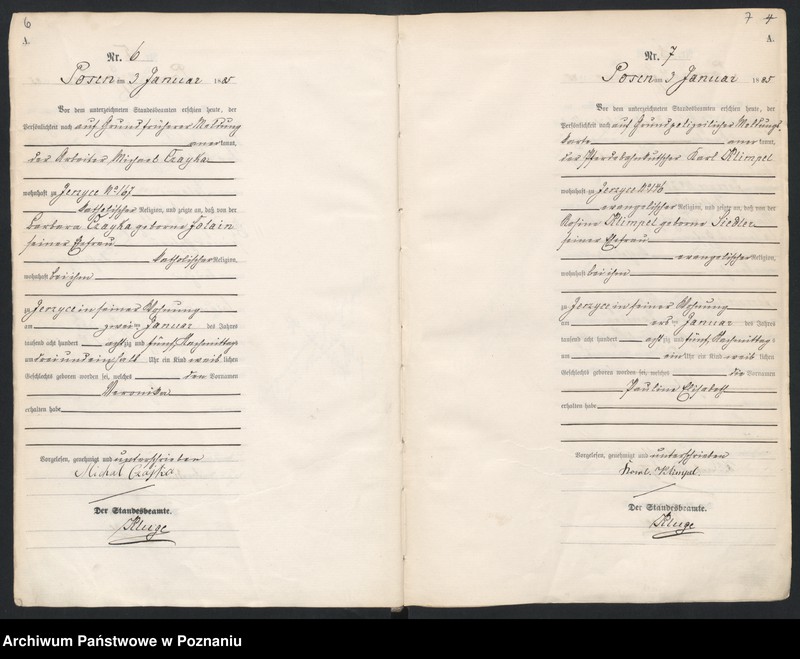 6
A.
Nr. 6
Posen am 3 Januar 1885
Vor dem unterzeichneten Standesbeamten erschien heute, der
Persönlichkeit nach auf Grund früherer Meldung
anerkannt,
der Arbeiter Michael Czayka
wohnhaft zu Jerzyce No 167
katholischer Religion, und zeigte an, daß von der
Barbara Czayka geborne
seiner Ehefrau
katholischer Religion,
wohnhaft bei ihm
zu Jerzyce in seiner Wohnung
am zwei ten Januar des Jahres
tausend acht hundert achtzig und fünf, Nachmittags
um drei und einhalb Uhr ein Kind weib lichen
Geschlechts geboren worden sei, welches den Vornamen
Veronika
erhalten habe
Vorgelesen, genehmigt und unterschrieben
Michal Czajka
Der Standesbeamte.
Kluge
7 4
A.
Nr. 7
Posen am 3 Januar 1885
Vor dem unterzeichneten Standesbeamten erschien heute, der
Persönlichkeit nach auf Grund polizeilicher Meldungs-
karte anerkannt,
der Pferdebahnkutscher Karl Klimpel
wohnhaft zu Jerzyce
evangelischer Religion, und zeigte an, daß von der
Rosina Klimpel geborne Siedler
seiner Ehefrau
evangelischer Religion,
wohnhaft bei ihm
zu Jerzyce in seiner Wohnung
am ersten Januar des Jahres
tausend acht hundert achtzig und fünf, Nachmittags
um ein Uhr ein Kind weib lichen
Geschlechts geboren worden sei, welches die Vornamen
Pauline Elisabeth
erhalten habe
Vorgelesen, genehmigt und unterschrieben
Klimpel
Der Standesbeamte.
Kluge
Archiwum Państwowe w Poznaniu